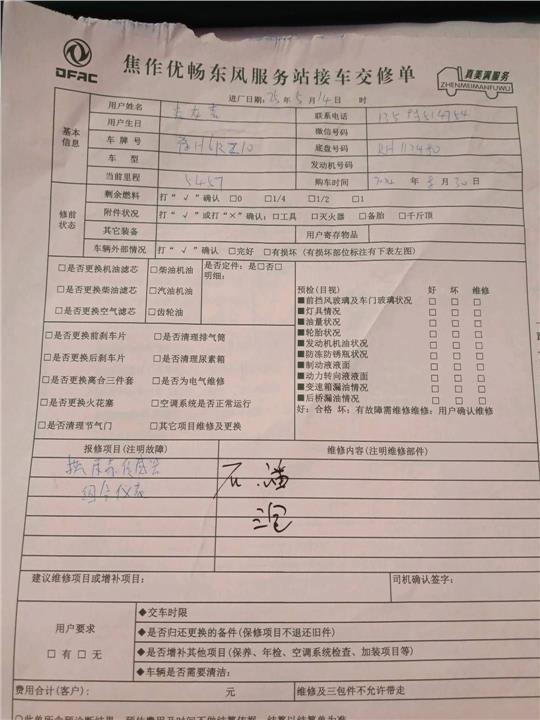 DFAC
焦作优畅东风服务站接车交修单
真美满服务
ZHENMEIMANFUWU
进厂日期: 25 年 5 月 14 日 时
基本信息
用户姓名 联系电话
用户生日 微信号码
车牌号 底盘号码
车型 发动机号码
当前里程 5457 购车时间 年 月 30 日
修前状态
剩余燃料 打“√”确认 □0 □1/4 □1/2 □1
附件状况 打“√”或打“×”确认:□工具 □灭火器 □备胎 □千斤顶
其它装备 用户寄存物品
车辆外部情况 打“√”确认 □完好 □有损坏(有损坏部位标注有下表左图)
□是否更换机油滤芯 □柴油机油 是否定件:是□否□
明细:
□是否更换柴油滤芯 □汽油机油
□是否更换空气滤芯 □齿轮油
预检(目视) 好 坏 维修
■前挡风玻璃及车门玻璃状况 □ □ □
■灯具情况 □ □ □
■油量状况 □ □ □
■轮胎状况 □ □ □
■发动机机油状况 □ □ □
■防冻防锈瓶状况 □ □ □
■制动液液面 □ □ □
■动力转向液液面 □ □ □
■变速箱漏油情况 □ □ □
■后桥漏油情况 □ □ □
好:合格 坏:有故障需维修维修:用户确认维修
□是否更换前刹车片 □是否清理排气筒
□是否更换后刹车片 □是否清理尿素箱
□是否更换离合三件套 □是否为电气维修
□是否更换火花塞 □空调系统是否正常运行
□是否清理节气门 □其它项目维修及更换
报修项目(注明故障) 维修内容(注明维修部件)
组合仪表
建议维修项目或增补项目: 司机确认签字:
用户要求
□有 □无
◆交车时限
◆是否归还更换的备件(保修项目不退还旧件)
◆是否增补其他项目(保养、年检、空调系统检查、加装项目等)
◆车辆是否需要清洁:
费用合计(客户): 元 维修及三包件不允许带走